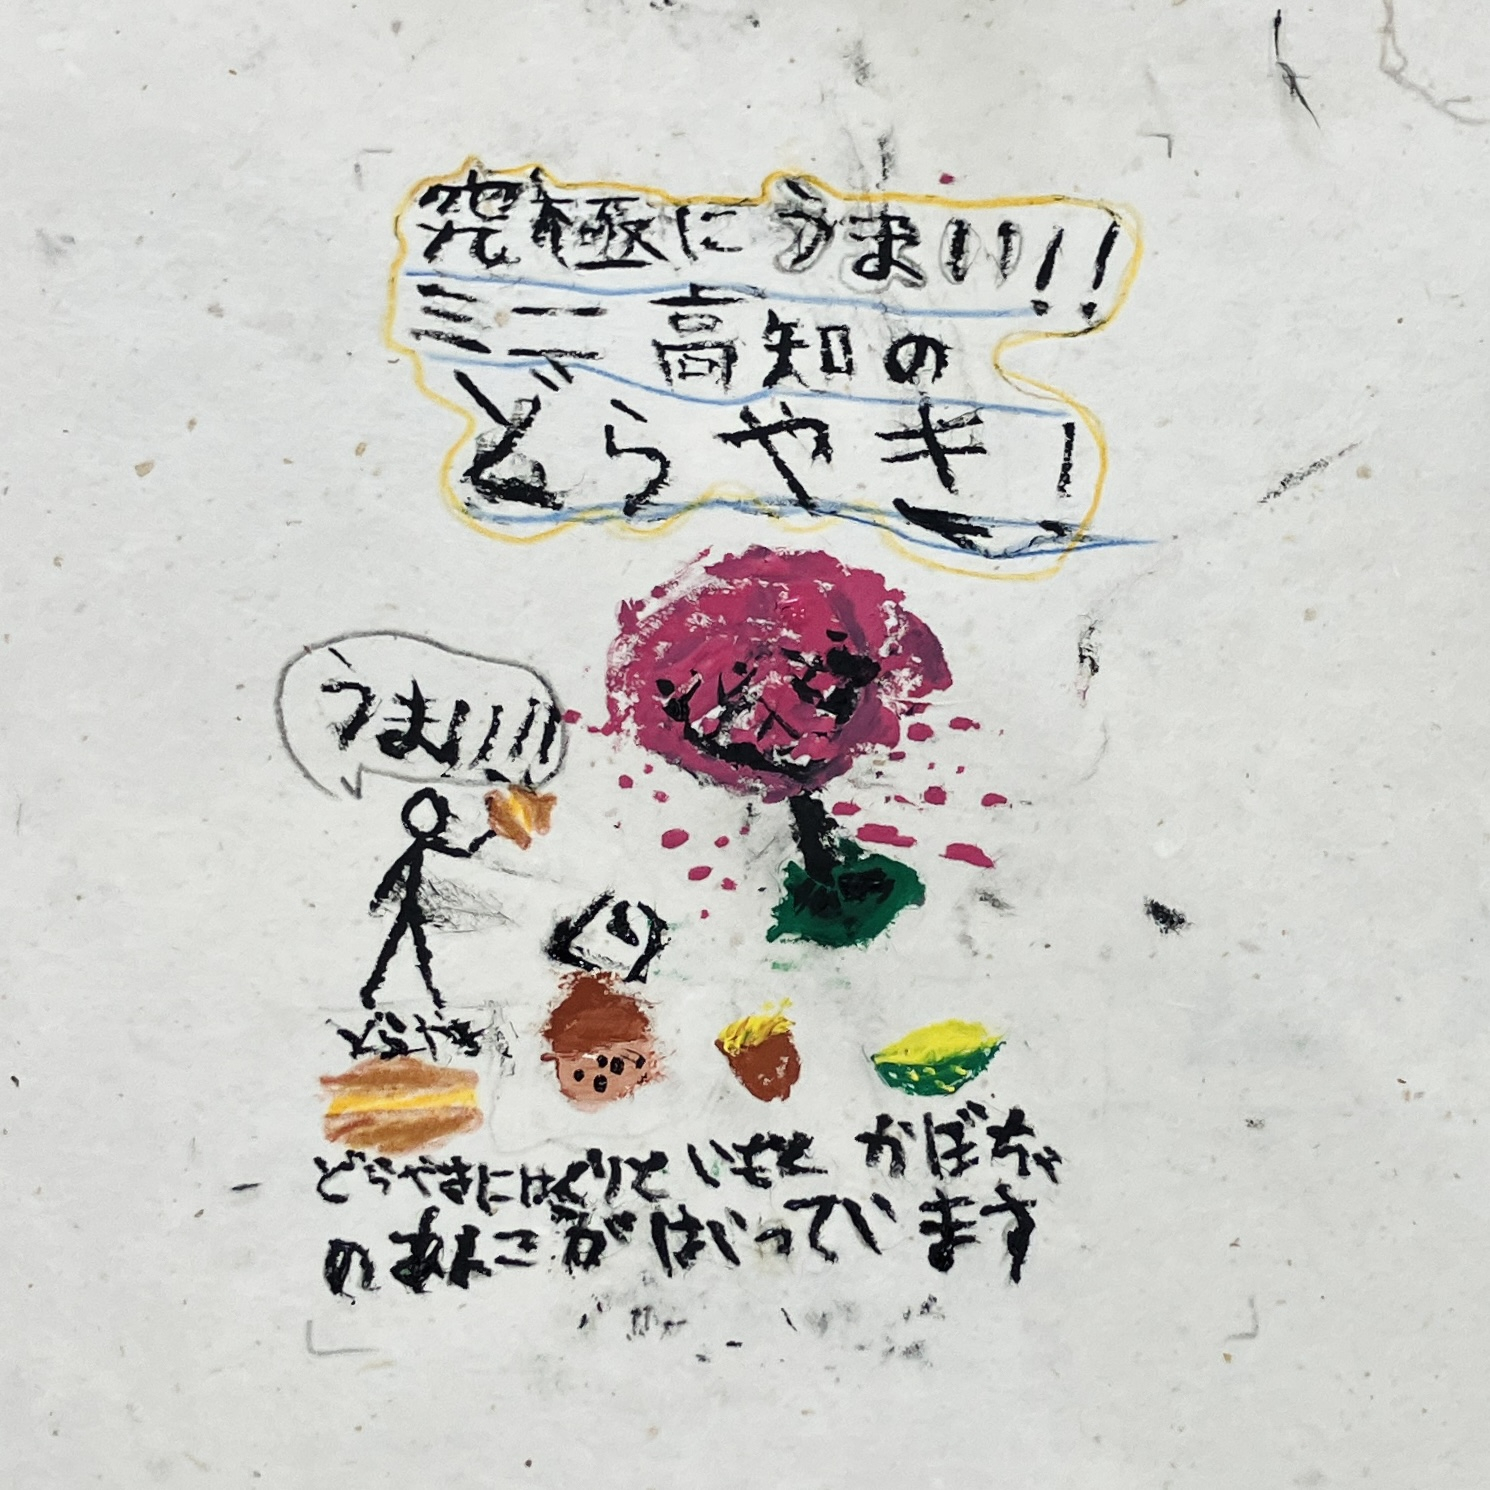 究極にうまい!!
ミニ高知の
どらやき!
うまい!!
どらやき
どらやきにはくりといもと かぼちゃ
のあんこがはいっています